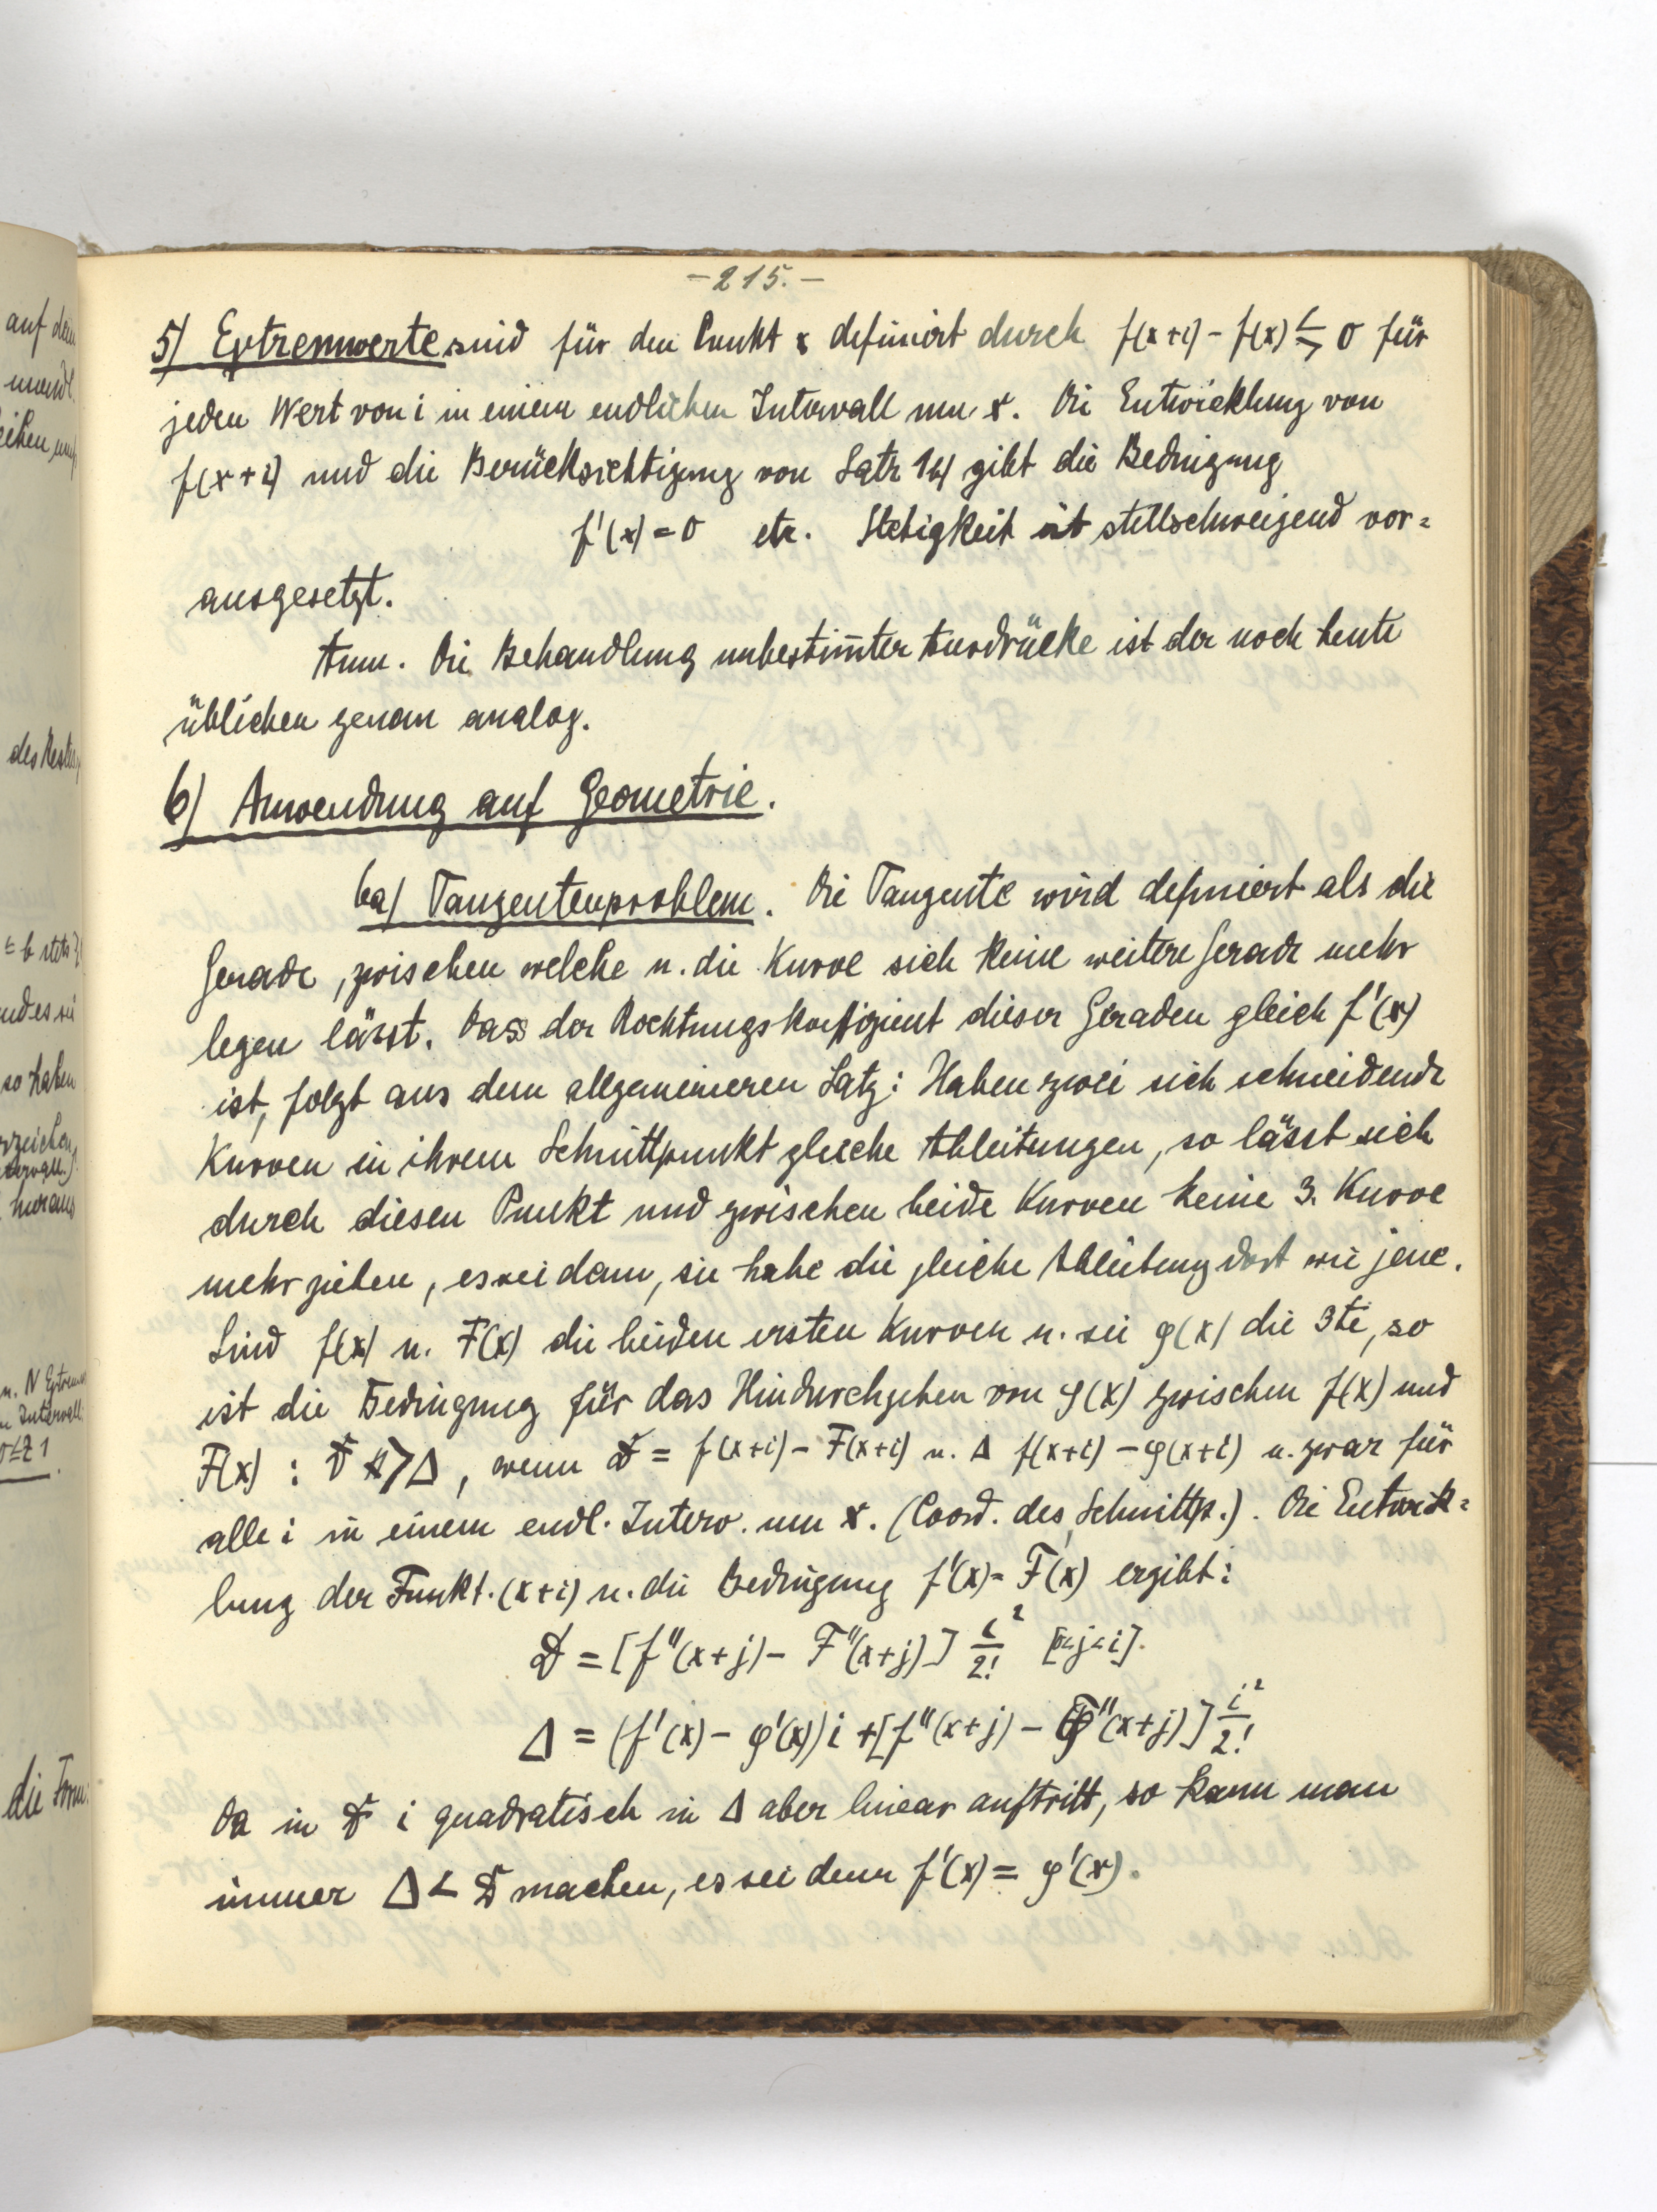 -215.-
5) Extremwerte sind für den Punkt x definiert durch f(x+i) - f(x) ≶ 0 für
jeden Wert von i in einem endlichen Intervall um x. Die Entwicklung von
f(x+i) und die Berücksichtigung von Satz 1b) gibt die Bedingung
f'(x) = 0 etc. Stetigkeit ist stillschweigend vor=
ausgesetzt.
Anm. Die Behandlung unbestim̄ter Ausdrücke ist der noch heute
üblichen genau analog.
6) Anwendung auf Geometrie.
6a) Tangentenproblem. Die Tangente wird definiert als die
Gerade, zwischen welche u. die Kurve sich keine weitere Gerade mehr
legen lässt. Dass der Richtungskoeffizient dieser Geraden gleich f'(x)
ist, folgt aus dem allgemeineren Satz: Haben zwei sich schneidende
Kurven in ihrem Schnittpunkt gleiche Ableitungen, so lässt sich
durch diesen Punkt und zwischen beide Kurven keine 3. Kurve
mehr ziehen, es sei denn, sie habe die gleiche Ableitung dort wie jene.
Sind f(x) u. F(x) die beiden ersten Kurven u. sei φ(x) die 3te, so
ist die Bedingung für das Hindurchgehen von φ(x) zwischen f(x) und
F(x) : D > Δ, wenn D = f(x+i) - F(x+i) u. Δ f(x+i) - φ(x+i) u. zwar für
alle i in einem endl. Interv. um x. (Coord. des Schnittp.). Die Entwick=
lung der Funkt. (x+i) u. die Bedingung f'(x) = F'(x) ergibt:
D = [f''(x+j) - F''(x+j)] i²/2! [0<j<i].
Δ = (f'(x) - φ'(x)) i + [f''(x+j) - φ''(x+j)] i²/2!
Da in D i quadratisch in Δ aber linear auftritt, so kann man
immer Δ < D machen, es sei denn f'(x) = φ'(x).
auf dem
des Restes
≤ b stets
und es sei
so haben
hieraus
u. N Extrem
Intervall
die Form: